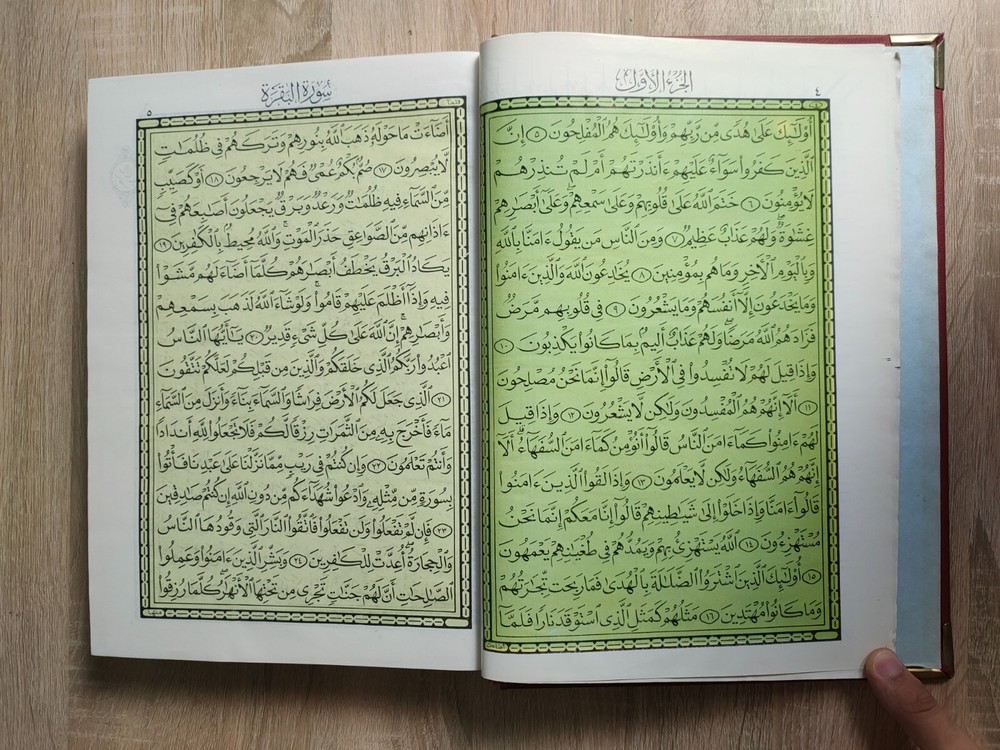 الجزء الأول
٤
أُوْلَٰٓئِكَ عَلَىٰ هُدًى مِّن رَّبِّهِمْ وَأُوْلَٰٓئِكَ هُمُ الْمُفْلِحُونَ ٥ إِنَّ
الَّذِينَ كَفَرُوا سَوَآءٌ عَلَيْهِمْ ءَأَنذَرْتَهُمْ أَمْ لَمْ تُنذِرْهُمْ
لَا يُؤْمِنُونَ ٦ خَتَمَ اللَّهُ عَلَىٰ قُلُوبِهِمْ وَعَلَىٰ سَمْعِهِمْ وَعَلَىٰ أَبْصَٰرِهِمْ
غِشَٰوَةٌ وَلَهُمْ عَذَابٌ عَظِيمٌ ٧ وَمِنَ النَّاسِ مَن يَقُولُ ءَامَنَّا بِاللَّهِ
وَبِالْيَوْمِ الْأَخِرِ وَمَا هُم بِمُؤْمِنِينَ ٨ يُخَٰدِعُونَ اللَّهَ وَالَّذِينَ ءَامَنُوا
وَمَا يَخْدَعُونَ إِلَّآ أَنفُسَهُمْ وَمَا يَشْعُرُونَ ٩ فِي قُلُوبِهِم مَّرَضٌ
فَزَادَهُمُ اللَّهُ مَرَضًا وَلَهُمْ عَذَابٌ أَلِيمٌ بِمَا كَانُوا يَكْذِبُونَ ١٠
وَإِذَا قِيلَ لَهُمْ لَا تُفْسِدُوا فِي الْأَرْضِ قَالُوٓا إِنَّمَا نَحْنُ مُصْلِحُونَ
١١ أَلَآ إِنَّهُمْ هُمُ الْمُفْسِدُونَ وَلَٰكِن لَّا يَشْعُرُونَ ١٢ وَإِذَا قِيلَ
لَهُمْ ءَامِنُوا كَمَآ ءَامَنَ النَّاسُ قَالُوٓا أَنُؤْمِنُ كَمَآ ءَامَنَ السُّفَهَآءُ أَلَآ
إِنَّهُمْ هُمُ السُّفَهَآءُ وَلَٰكِن لَّا يَعْلَمُونَ ١٣ وَإِذَا لَقُوا الَّذِينَ ءَامَنُوا
قَالُوٓا ءَامَنَّا وَإِذَا خَلَوْا إِلَىٰ شَيَٰطِينِهِمْ قَالُوٓا إِنَّا مَعَكُمْ إِنَّمَا نَحْنُ
مُسْتَهْزِءُونَ ١٤ اللَّهُ يَسْتَهْزِئُ بِهِمْ وَيَمُدُّهُمْ فِي طُغْيَٰنِهِمْ يَعْمَهُونَ
١٥ أُوْلَٰٓئِكَ الَّذِينَ اشْتَرَوُا الضَّلَٰلَةَ بِالْهُدَىٰ فَمَا رَبِحَت تِّجَٰرَتُهُمْ
وَمَا كَانُوا مُهْتَدِينَ ١٦ مَثَلُهُمْ كَمَثَلِ الَّذِي اسْتَوْقَدَ نَارًا فَلَمَّآ
سورة البقرة
٥
أَضَآءَتْ مَا حَوْلَهُ ذَهَبَ اللَّهُ بِنُورِهِمْ وَتَرَكَهُمْ فِي ظُلُمَٰتٍ
لَّا يُبْصِرُونَ ١٧ صُمٌّ بُكْمٌ عُمْيٌ فَهُمْ لَا يَرْجِعُونَ ١٨ أَوْ كَصَيِّبٍ
مِّنَ السَّمَآءِ فِيهِ ظُلُمَٰتٌ وَرَعْدٌ وَبَرْقٌ يَجْعَلُونَ أَصَٰبِعَهُمْ فِيٓ
ءَاذَانِهِم مِّنَ الصَّوَٰعِقِ حَذَرَ الْمَوْتِ وَاللَّهُ مُحِيطٌ بِالْكَٰفِرِينَ ١٩
يَكَادُ الْبَرْقُ يَخْطَفُ أَبْصَٰرَهُمْ كُلَّمَآ أَضَآءَ لَهُم مَّشَوْا
فِيهِ وَإِذَآ أَظْلَمَ عَلَيْهِمْ قَامُوا وَلَوْ شَآءَ اللَّهُ لَذَهَبَ بِسَمْعِهِمْ
وَأَبْصَٰرِهِمْ إِنَّ اللَّهَ عَلَىٰ كُلِّ شَيْءٍ قَدِيرٌ ٢٠ يَٰٓأَيُّهَا النَّاسُ
اعْبُدُوا رَبَّكُمُ الَّذِي خَلَقَكُمْ وَالَّذِينَ مِن قَبْلِكُمْ لَعَلَّكُمْ تَتَّقُونَ
٢١ الَّذِي جَعَلَ لَكُمُ الْأَرْضَ فِرَٰشًا وَالسَّمَآءَ بِنَآءً وَأَنزَلَ مِنَ السَّمَآءِ
مَآءً فَأَخْرَجَ بِهِ مِنَ الثَّمَرَٰتِ رِزْقًا لَّكُمْ فَلَا تَجْعَلُوا لِلَّهِ أَندَادًا
وَأَنتُمْ تَعْلَمُونَ ٢٢ وَإِن كُنتُمْ فِي رَيْبٍ مِّمَّا نَزَّلْنَا عَلَىٰ عَبْدِنَا فَأْتُوا
بِسُورَةٍ مِّن مِّثْلِهِ وَادْعُوا شُهَدَآءَكُم مِّن دُونِ اللَّهِ إِن كُنتُمْ صَٰدِقِينَ
٢٣ فَإِن لَّمْ تَفْعَلُوا وَلَن تَفْعَلُوا فَاتَّقُوا النَّارَ الَّتِي وَقُودُهَا النَّاسُ
وَالْحِجَارَةُ أُعِدَّتْ لِلْكَٰفِرِينَ ٢٤ وَبَشِّرِ الَّذِينَ ءَامَنُوا وَعَمِلُوا
الصَّٰلِحَٰتِ أَنَّ لَهُمْ جَنَّٰتٍ تَجْرِي مِن تَحْتِهَا الْأَنْهَٰرُ كُلَّمَا رُزِقُوا